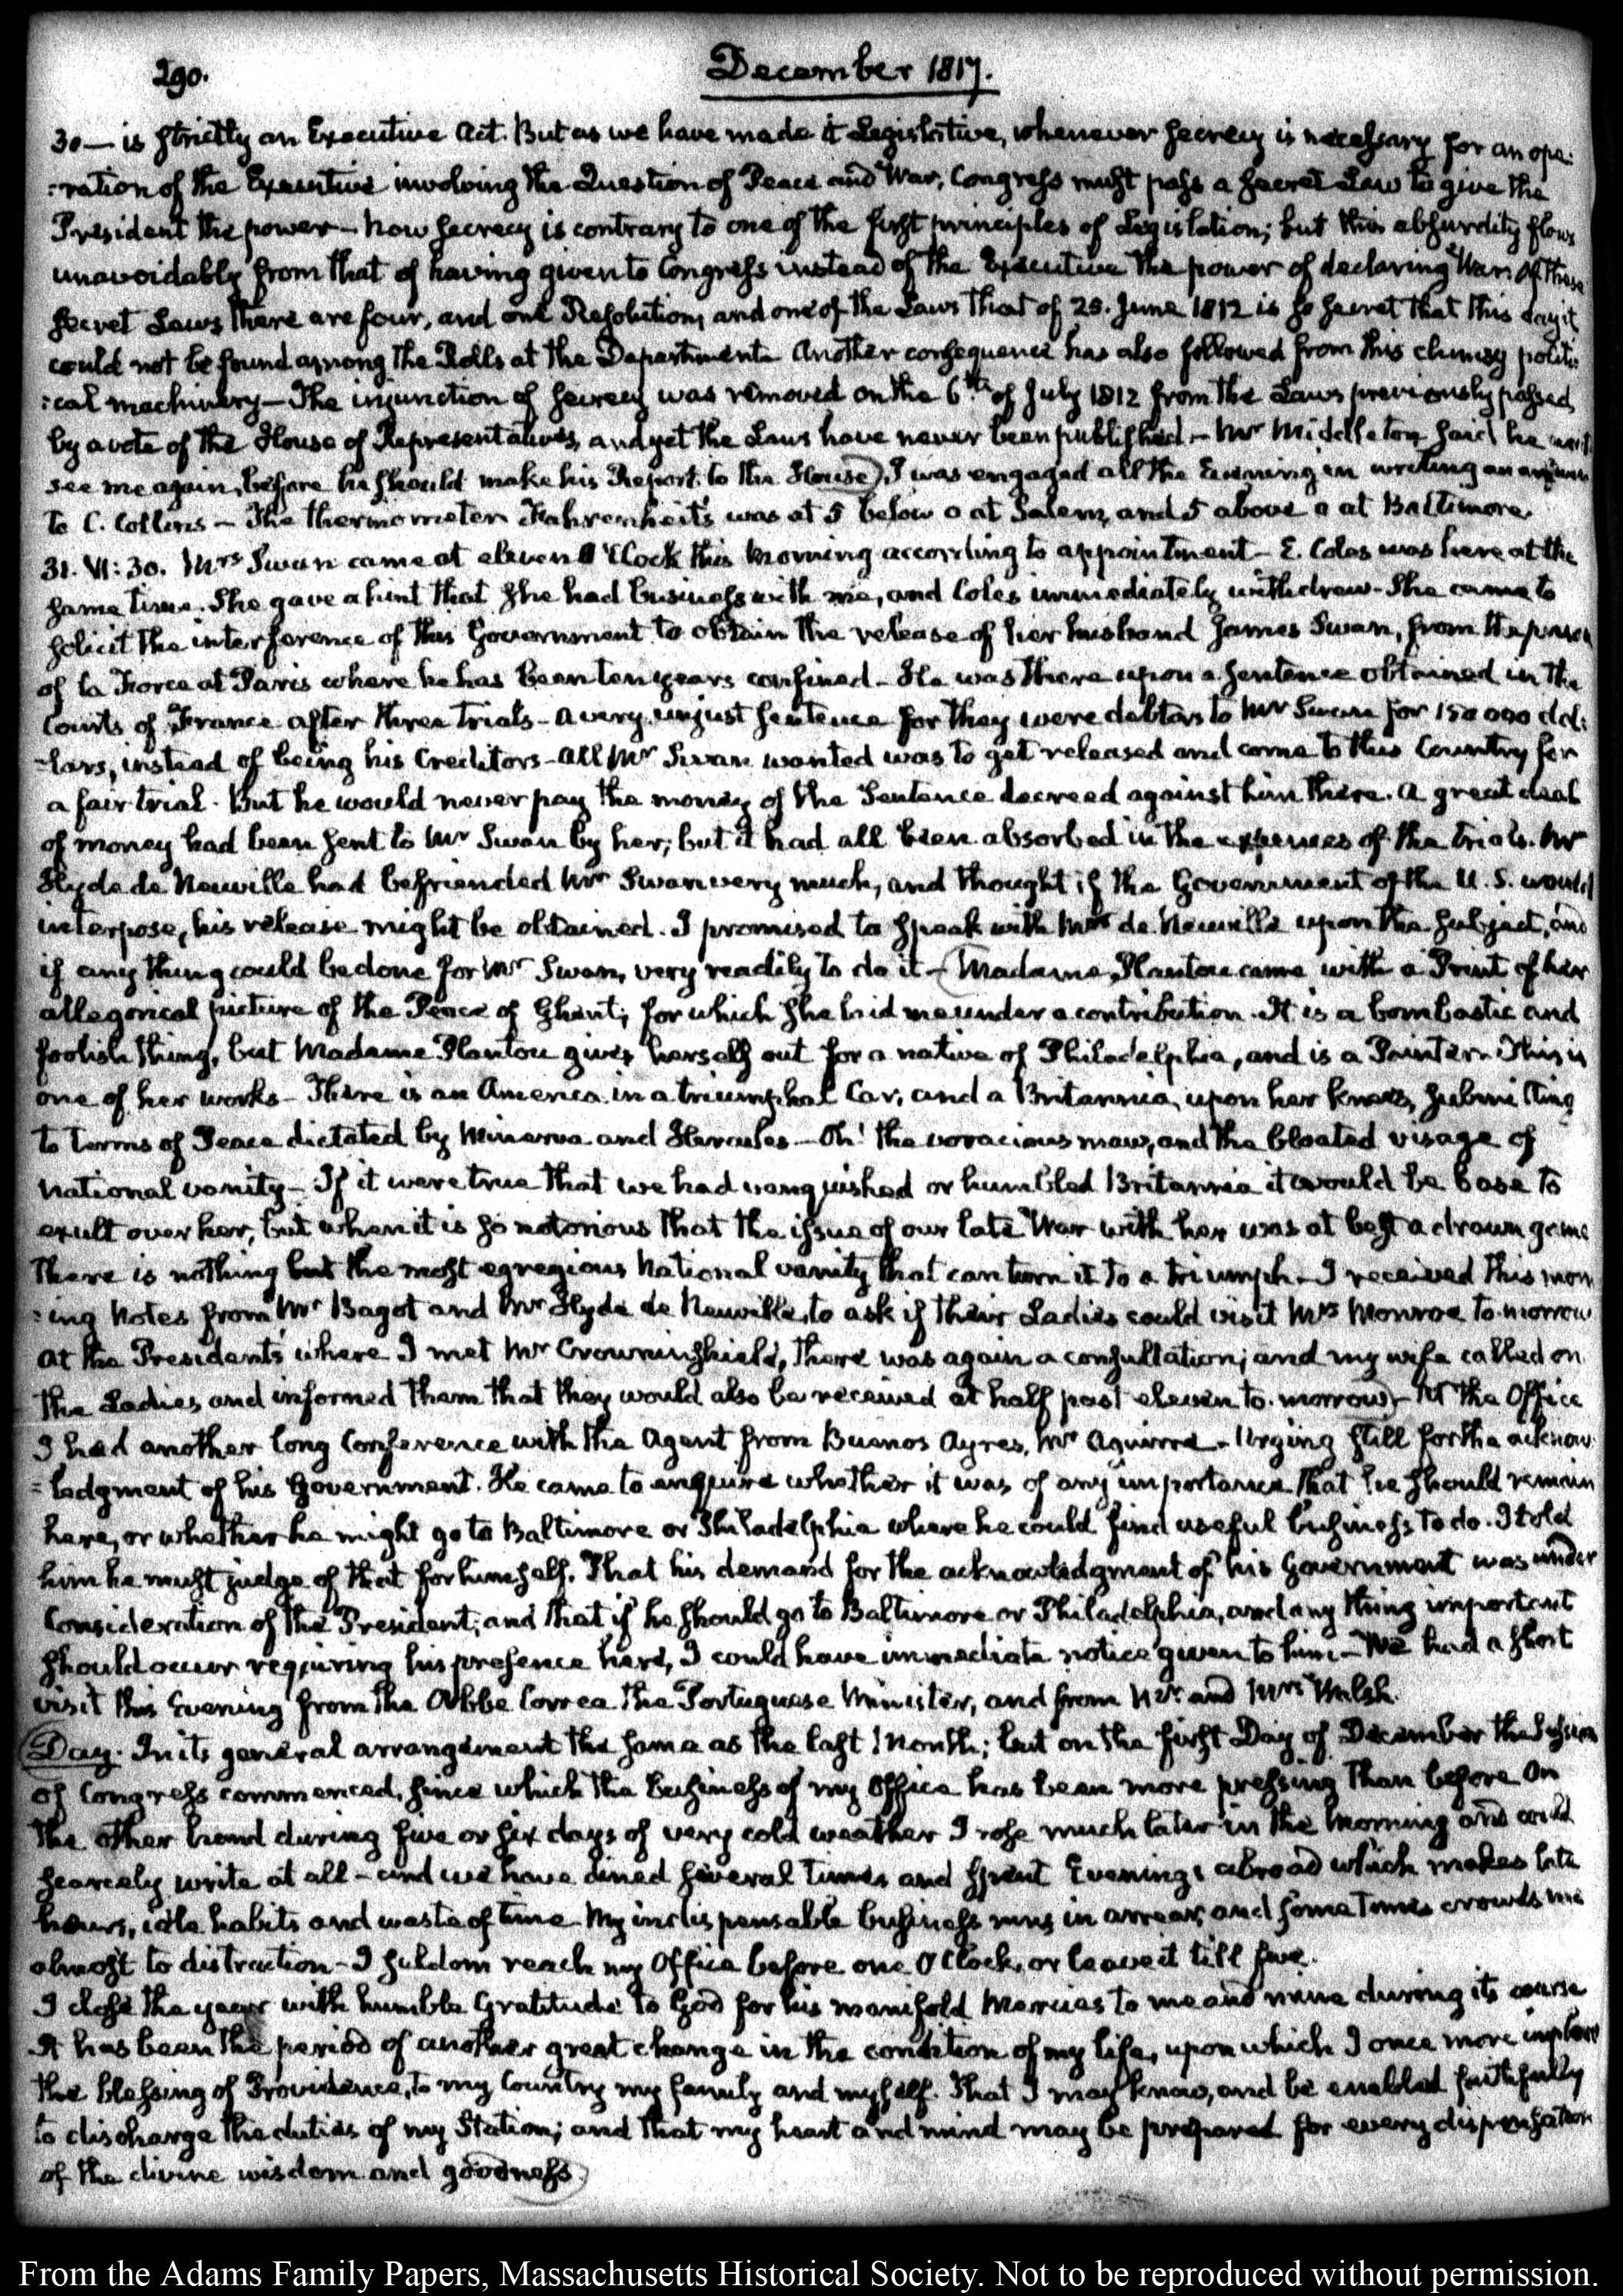 290.
December 1817.
30— is strictly an Executive Act. But as we have made it Legislative, whenever secrecy is necessary for an ope:
:ration of the Executive involving the Question of Peace and War, Congress must pass a secret Law to give the
President the power— now secrecy is contrary to one of the first principles of Legislation; but this absurdity flows
unavoidably from that of having given to Congress instead of the Executive the power of declaring War. Of these
secret Laws there are four, and one Resolution, and one of the Laws that of 25. June 1812 is so secret that this day it
could not be found among the Rolls at the Department. Another consequence has also followed from this clumsy politi:
:cal machinery— The injunction of secrecy was removed on the 6th of July 1812 from the Laws previously passed,
by a vote of the House of Representatives, and yet the Laws have never been published.— Mr Middleton said he would
see me again, before he should make his Report to the House. I was engaged all the Evening in writing an answer
to C. Collins— The thermometer Fahrenheit's was at 5 below 0 at Salem, and 5 above 0 at Baltimore.
31. VI: 30. Mrs Swan came at eleven O'Clock this morning according to appointment— E. Coles was here at the
same time. She gave a hint that she had business with me, and Coles immediately withdrew— She came to
solicit the interference of this Government to obtain the release of her husband James Swan, from the prison
of la Force at Paris where he has been ten years confined— He was there upon a sentence obtained in the
Courts of France after three trials— a very unjust sentence for they were debtors to Mr Swan for 150 000 dol:
:lars, instead of being his Creditors— All Mr Swan wanted was to get released and come to this Country for
a fair trial. But he would never pay the money of the Sentence decreed against him there. A great deal
of money had been sent to Mr Swan by her; but it had all been absorbed in the expenses of the trials. Mr
Hyde de Neuville had befriended Mr Swan very much, and thought if the Government of the U.S. would
interpose, his release might be obtained. I promised to speak with Mr de Neuville upon the subject, and
if any thing could be done for Mr Swan, very readily to do it— Madame Plantou came with a Print of her
allegorical picture of the Peace of Ghent; for which she laid me under a contribution. It is a bombastic and
foolish thing, but Madame Plantou gives herself out for a native of Philadelphia, and is a Painter. This is
one of her works— There is an America in a triumphal Car, and a Britannia, upon her knees, submitting
to terms of Peace dictated by Minerva and Hercules— Oh! the voracious maw, and the bloated visage of
National vanity— If it were true that we had vanquished or humbled Britannia it would be base to
exult over her, but when it is so notorious that the issue of our late War with her was at best a drawn game
there is nothing but the most egregious National vanity that can turn it to a triumph— I received this morn
:ing Notes from Mr Bagot and Mr Hyde de Neuville, to ask if their Ladies could visit Mrs Monroe to-morrow
At the President's where I met Mr Crowninshield, there was again a consultation; and my wife called on
the Ladies and informed them that they would also be received at half past eleven to-morrow— At the Office
I had another long Conference with the Agent from Buenos Ayres, Mr Aguirre— Urging still for the acknow:
:ledgment of his Government. He came to enquire whether it was of any importance that he should remain
here, or whether he might go to Baltimore or Philadelphia where he could find useful business to do. I told
him he must judge of that for himself. That his demand for the acknowledgment of his Government was under
Consideration of the President; and that if he should go to Baltimore or Philadelphia, and any thing important
should occur requiring his presence here, I could have immediate notice given to him— We had a short
visit this Evening from the Abbe Correa the Portuguese Minister, and from Mr. and Mrs Walsh.
Day. In its general arrangement the same as the last Month; but on the first Day of December the Session
of Congress commenced, since which the business of my Office has been more pressing than before On
the other hand during five or six days of very cold weather I rose much later in the Morning and could
scarcely write at all— and we have dined several times and spent Evenings abroad which makes late
hours, idle habits and waste of time My indispensable business runs in arrear, and sometimes crowds me
almost to distraction— I seldom reach my Office before one O'Clock, or leave it till five.
I close the year with humble Gratitude to God for his manifold Mercies to me and mine during its course
It has been the period of another great change in the condition of my life, upon which I once more implore
the blessing of Providence, to my Country my family and myself. That I may know, and be enabled faithfully
to discharge the duties of my Station; and that my heart and mind may be prepared for every dispensation
of the divine wisdom and goodness.
From the Adams Family Papers, Massachusetts Historical Society. Not to be reproduced without permission.